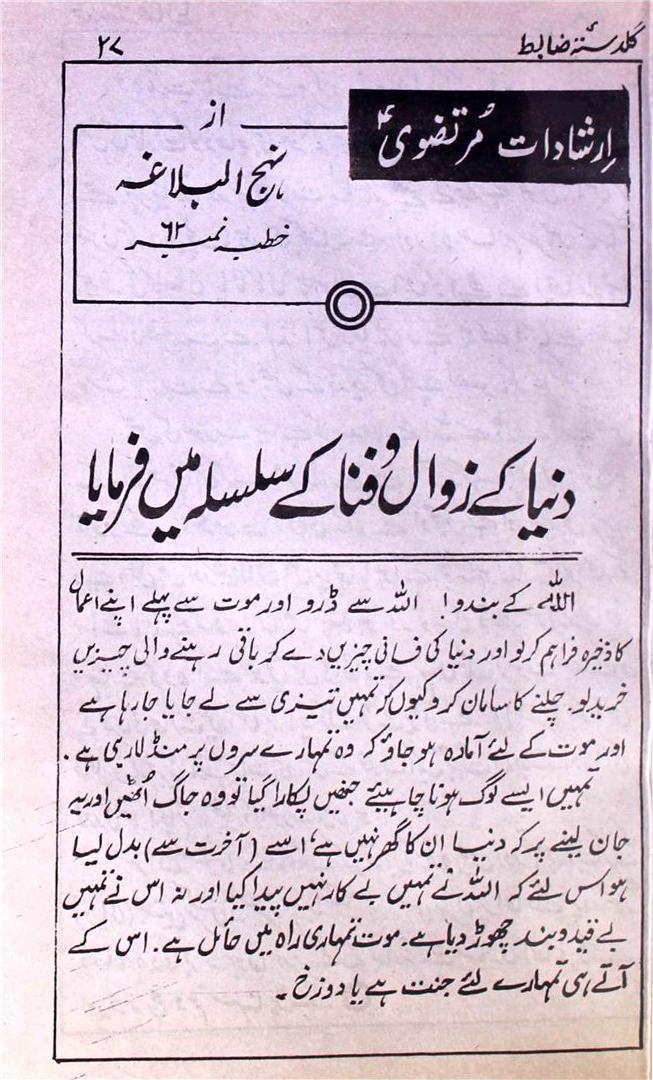 گلدستۂ ضابط
۲۷
ارشادات مُرتضویؑ
از
نہج البلاغہ
خطبہ نمبر ۶۲
دنیا کے زوال و فنا کے سلسلہ میں فرمایا
اللہ کے بندو! اللہ سے ڈرو اور موت سے پہلے اپنے اعمال
کا ذخیرہ فراہم کر لو اور دنیا کی فانی چیزیں دے کر باقی رہنے والی چیزیں
خرید لو۔ چلنے کا سامان کرو کیوں کہ تمہیں تیزی سے لے جایا جا رہا ہے
اور موت کے لئے آمادہ ہو جاؤ کہ وہ تمہارے سروں پر منڈلا رہی ہے۔
تمہیں ایسے لوگ ہونا چاہیئے جنھیں پکارا گیا تو وہ جاگ اُٹھیں اور یہ
جان لینے پر کہ دنیا ان کا گھر نہیں ہے، اسے (آخرت سے) بدل لیا
ہو اس لئے کہ اللہ نے تمہیں بے کار نہیں پیدا کیا اور نہ اس نے تمہیں
بے قید و بند چھوڑ دیا ہے۔ موت تمہاری راہ میں حائل ہے۔ اس کے
آتے ہی تمہارے لئے جنت ہے یا دوزخ۔